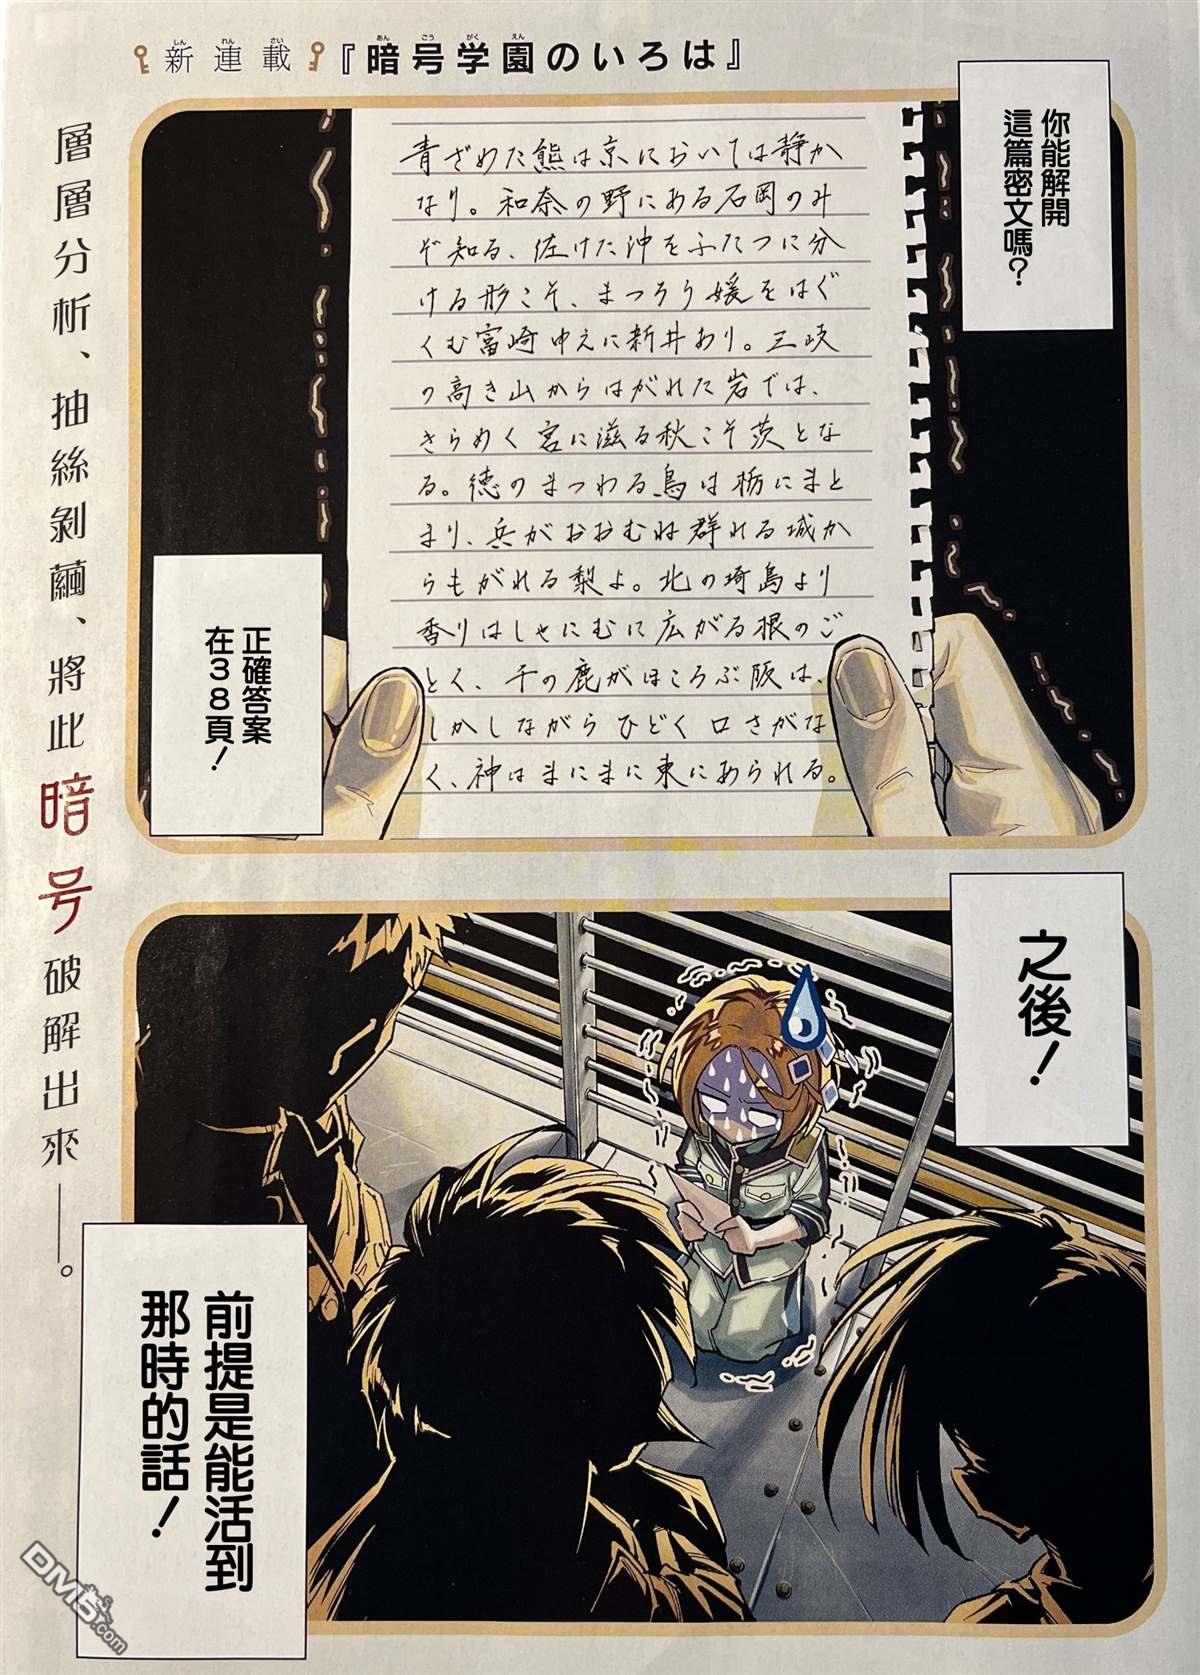 新連載『暗号学園のいろは』
你能解開
這篇密文嗎？
青ざめた熊は京においては静か
なり。和奈の野にある石岡のみ
ぞ知る、佐けた沖をふたつに分
ける形こそ、まつろう媛をはぐ
くむ富崎ゆえに新井あり。三岐
の高き山からはがれた岩では、
きらめく宮に滋る秋こそ茨とな
る。徳のまつわる鳥は栃にまと
まり、兵がおおむね群れる城か
らもがれる梨よ。北の埼島より
香りはしゃにむに広がる根のご
とく、千の鹿がほころぶ阪は、
しかしながらひどく口さがな
く、神はまにまに東にあられる。
正確答案
在38頁！
層層分析、抽絲剝繭、將此暗号破解出來——。
之後！
前提是能活到
那時的話！
DM5.com